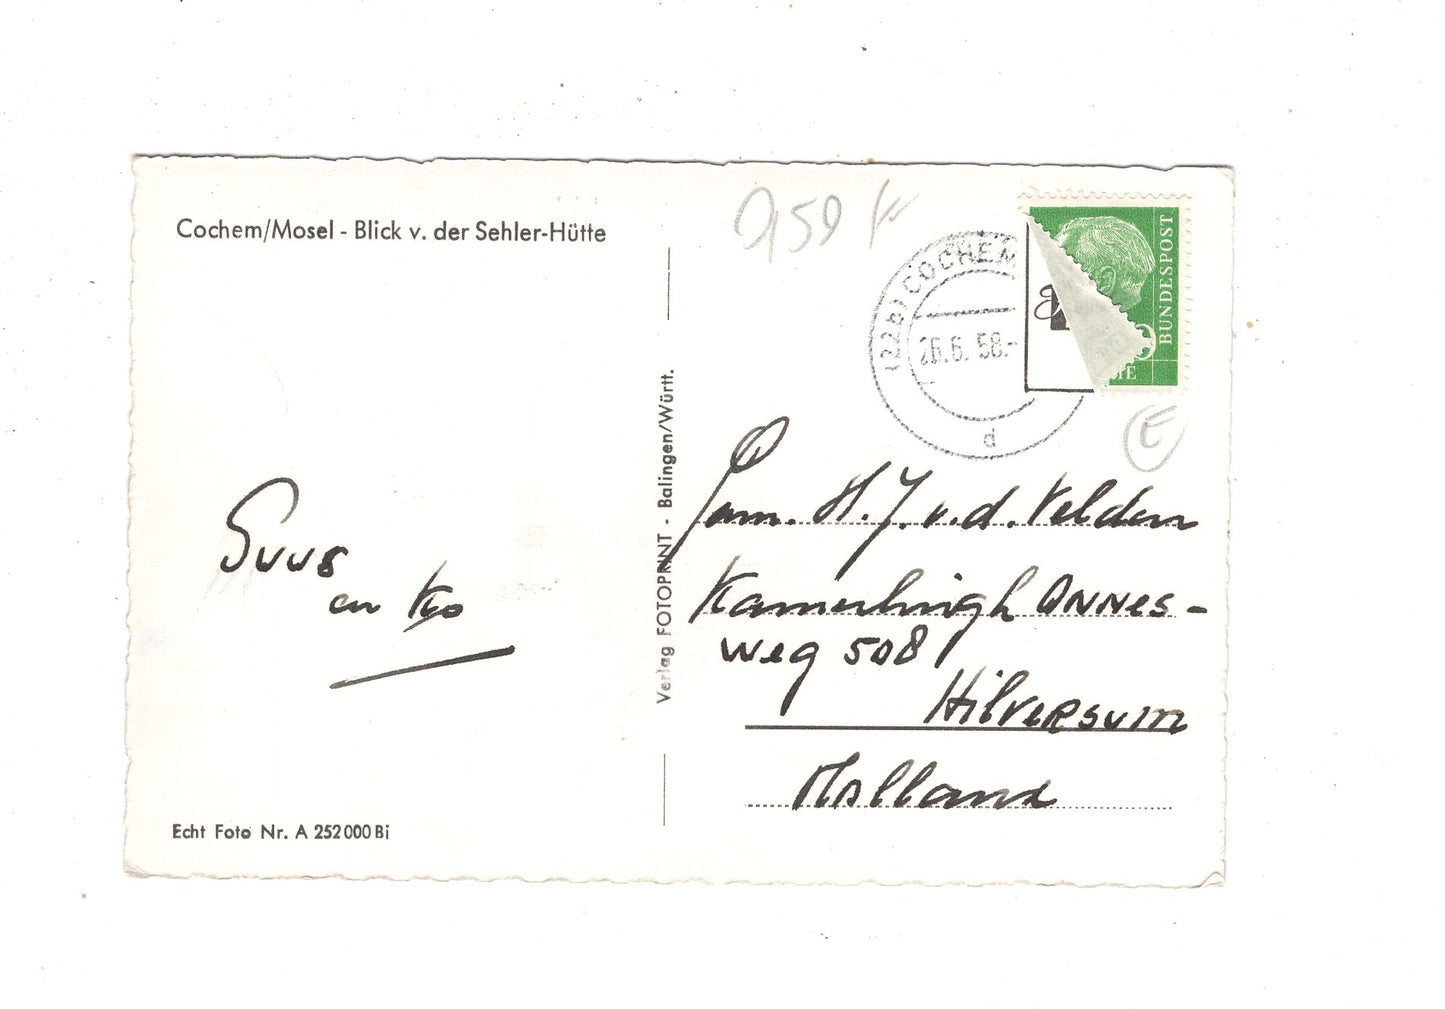 Cochem/Mosel - Blick v. der Sehler-Hütte
0,50
(22b) COCHEM
26.6.58.-
d
BUNDESPOST
E
Fam. H. J. v. d. Velden
Kamerlingh ONNES-
weg 508
Hilversum
Holland
Suus
en Ko
Verlag FOTOPRINT - Balingen/Württ.
Echt Foto Nr. A 252 000 Bi